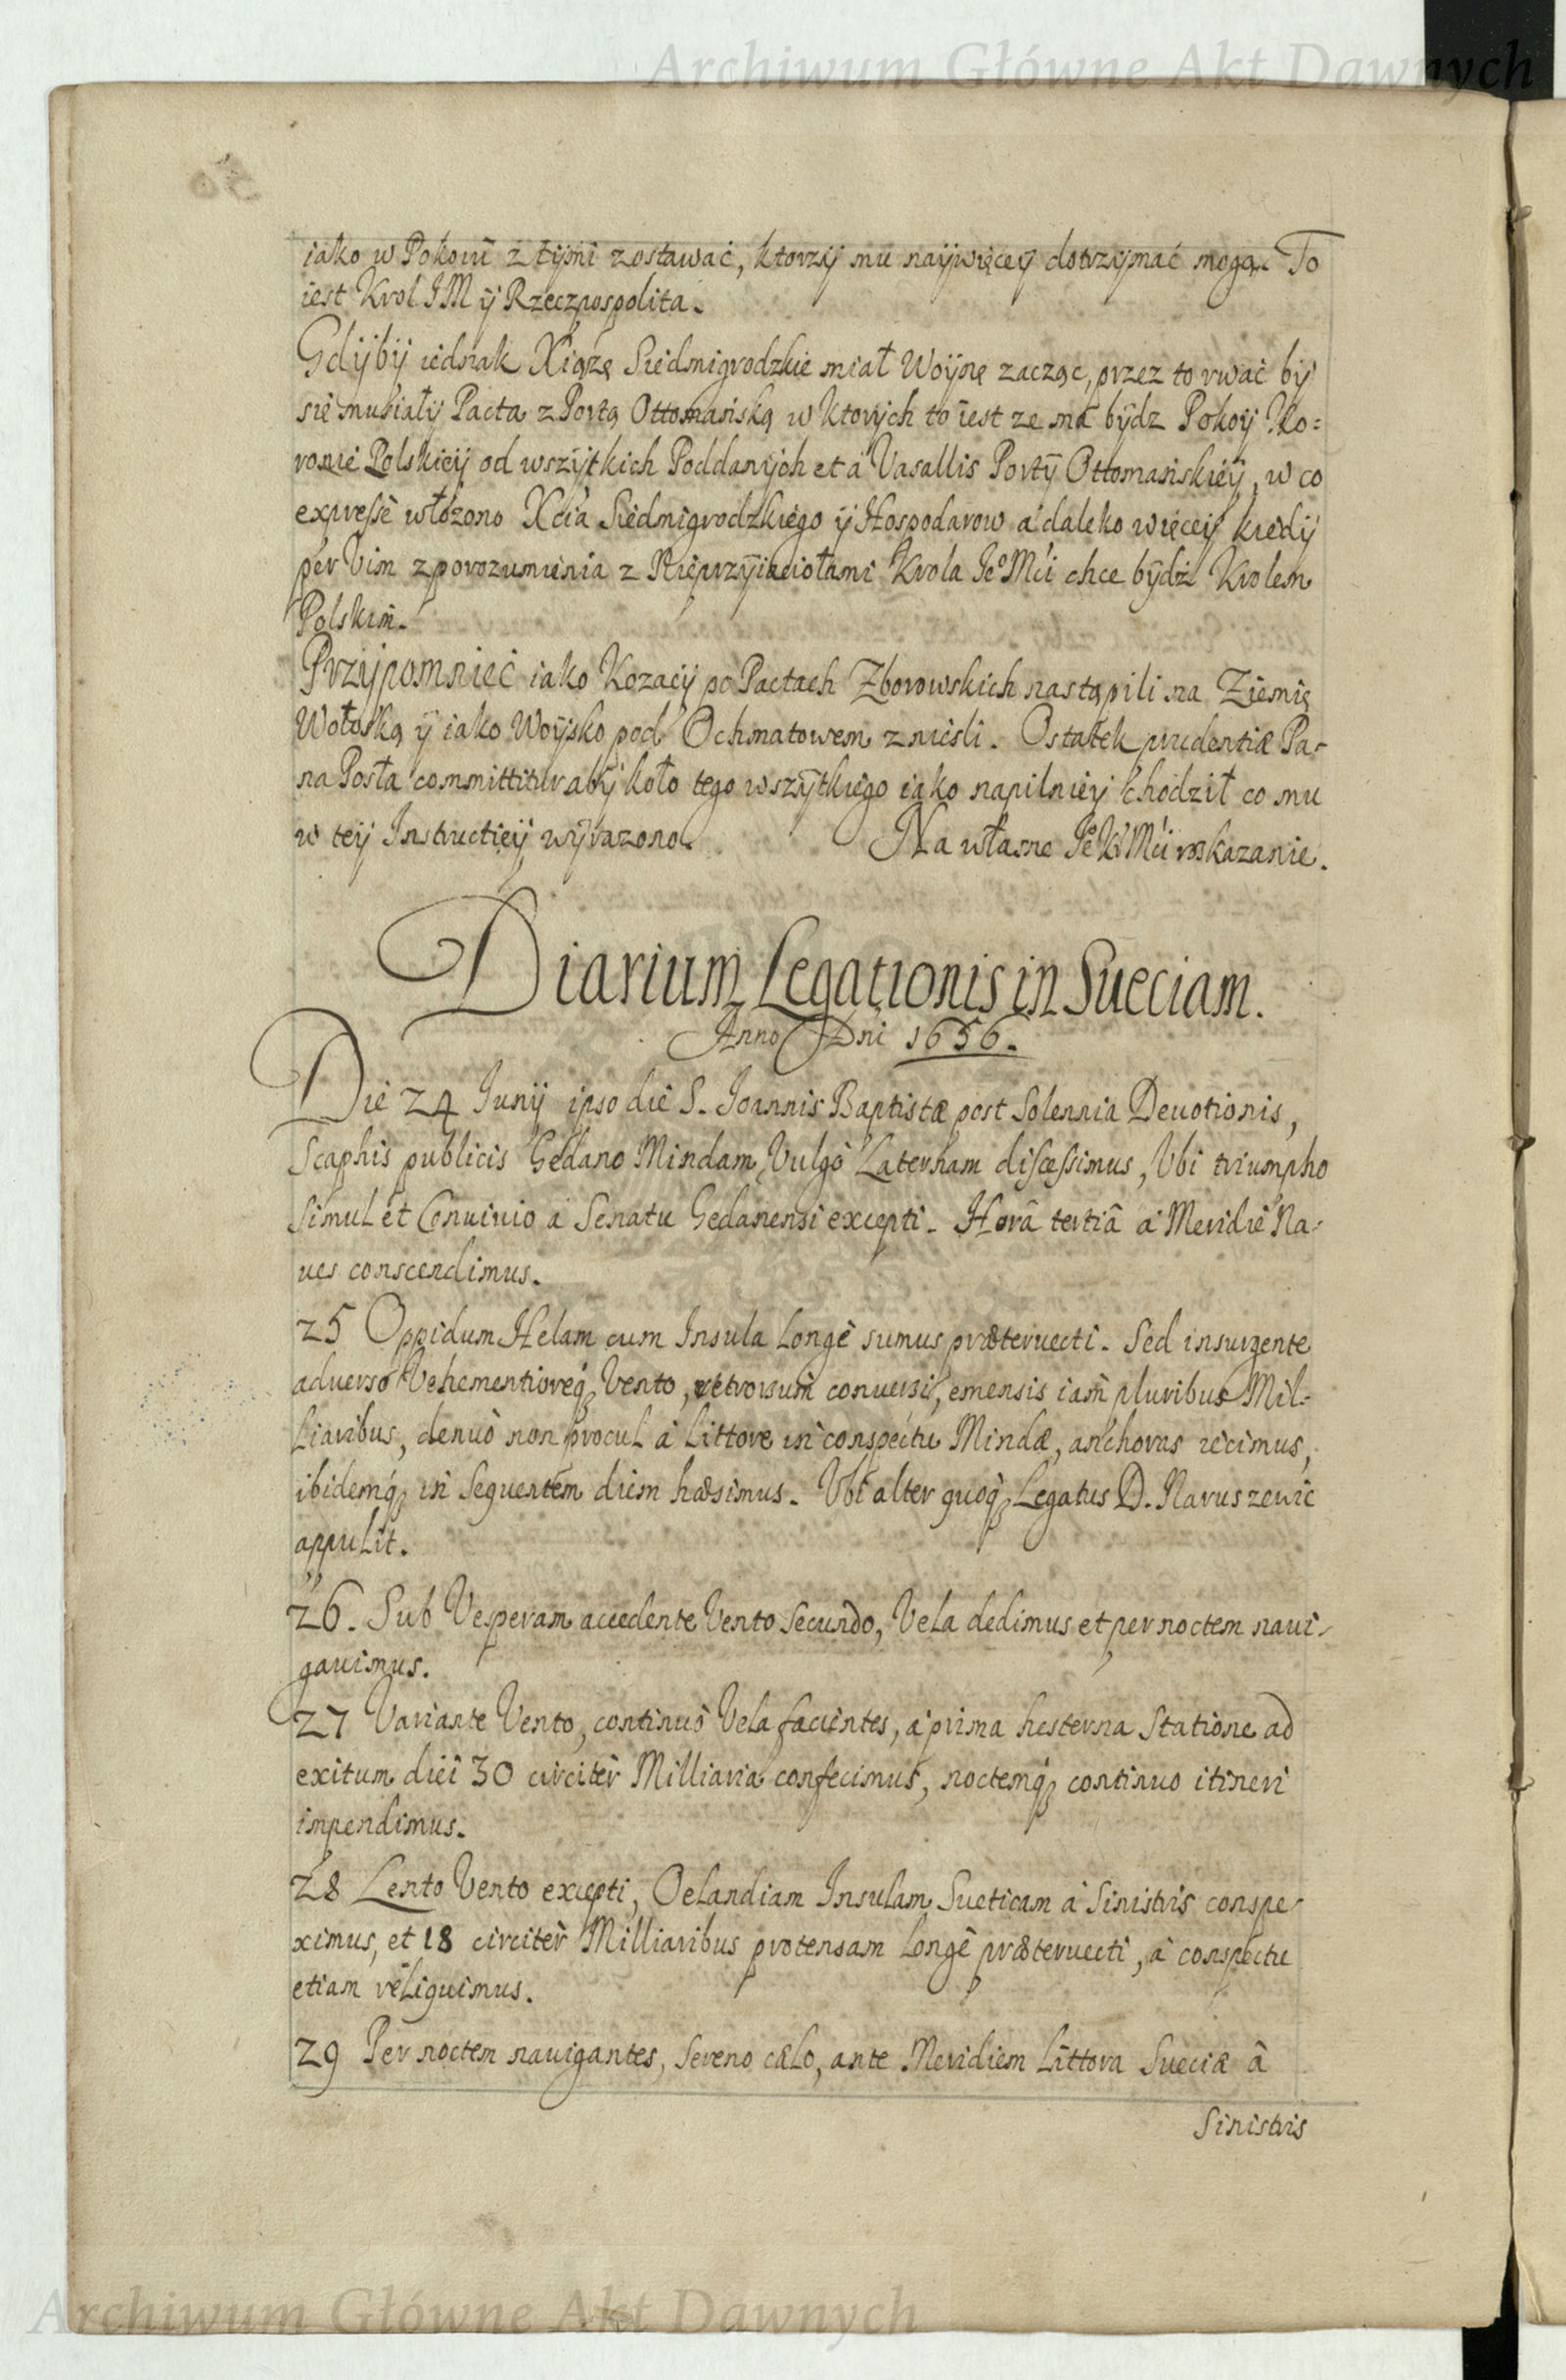 Archiwum Główne Akt Dawnych
50
iako w Pokoiu z tÿmi zostawać, ktorzÿ mu naÿwięceÿ dotrzÿmać mogą. To
iest Krol JM ÿ Rzeczpospolita.
Gdÿbÿ iednak Xiąże Siedmigrodzkie miał Woÿnę zacząc, przez to rwać bÿ
się musiałÿ Pacta z Portą Ottomańską w ktorÿch to iest ze ma bÿdz Pokoÿ Ko:
ronie Polskieÿ od wszÿtkich Poddanÿch et á Vasallis Portÿ Ottomańskieÿ, w co
expressè włożono Xcia Siedmigrodzkiego ÿ Hospodarow a daleko więceÿ kiedÿ
per Vim z porozumienia z Nieprzÿiaciołami Krola Jeº Mći chce bÿdź Krolem
Polskim.
Przÿpomnieć iako Kozacÿ po Pactach Zborowskich nastąpili na Ziemię
Wołoską ÿ iako Woÿsko pod Ochmatowem znieśli. Ostatek prudentiæ Pa-
na Posła committitur abÿ koło tego wszÿtkiego iako napilnieÿ chodził co mu
w teÿ Instructieÿ wÿrazono. Na własne Jeº K Mći roskazanie.
Diarium Legationis in Sueciam.
Anno Dni 1656.
Die 24 Junij ipso die S. Joannis Baptistæ post Solennia Deuotionis,
Scaphis publicis Gedano Mindam Vulgò Laternam discessimus, Vbi triumpho
Simul et Conuiuio á Senatu Gedanensi excepti. Horâ tertiâ á Meridie Na-
ues conscendimus.
25 Oppidum Helam cum Insula Longè sumus præteruecti. Sed insurgente
aduerso Vehementioreq; Vento, retrorsum conuersi, emensis iam pluribus Mil-
Liaribus, denuò non procul á Littore in conspectu Mindæ, anchoras iecimus,
ibidemq; in Sequentem diem hæsimus. Vbi alter quoq; Legatus D. Naruszewic
appulit.
26. Sub Vesperam accedente Vento Secundo, Vela dedimus et per noctem naui-
gauimus.
27 Variante Vento, continuò Vela facientes, á prima hesterna Statione ad
exitum diei 30 circitèr Milliaria confecimus, noctemq; continuo itineri
impendimus.
28 Lento Vento excepti, Oelandiam Insulam Sueticam á Sinistris conspe-
ximus, et 18 circitèr Milliaribus protensam Longè præteruecti, á conspectu
etiam reliquimus.
29 Per noctem nauigantes, Sereno cælo, ante Meridiem Littora Sueciæ â
Sinistris
Archiwum Główne Akt Dawnych